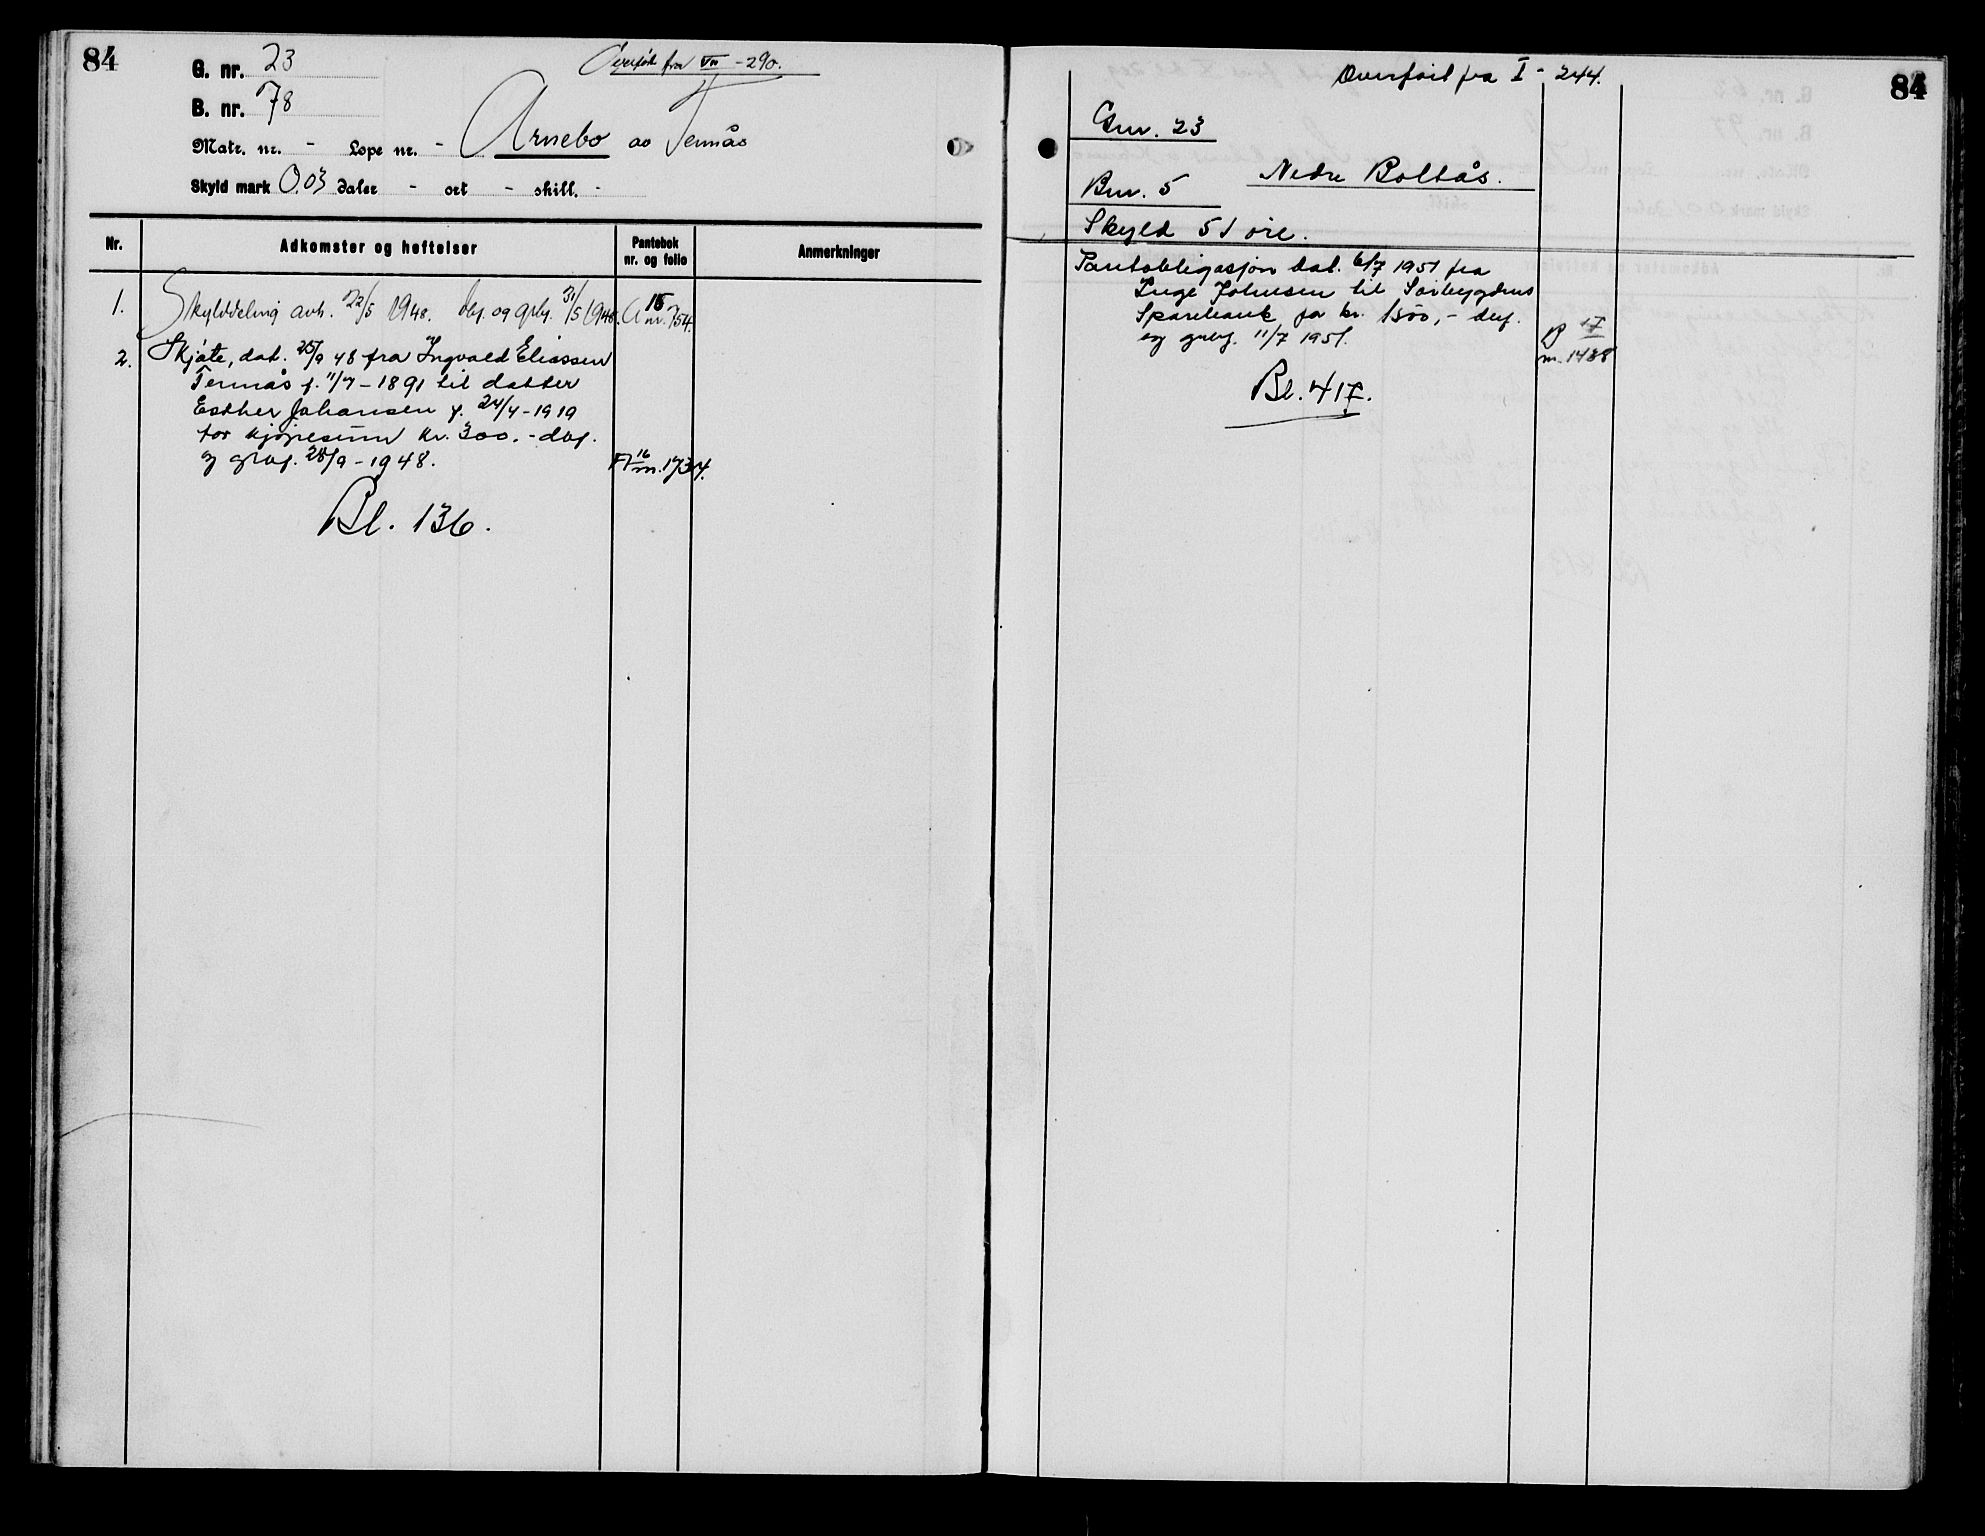 84
G. nr. 23
Overført fra VII - 290.
B. nr. 78
Matr. nr. - Løpe nr. - Arnebo av Ternås
Skyld mark 0.03 daler - ort - skill. -
Nr. Adkomster og heftelser Pantebok nr. og folio Anmerkninger
1. Skylddeling avh. 22/5 1948. dbf. og grbf. 31/5 1948. A 15 nr. 754.
2. Skjøte, dat. 25/9 48 fra Ingvald Eliassen
Ternås f. 11/7 - 1891 til datter
Esther Johansen f. 24/4 - 1919
for kjøpesum kr. 300.- dbf.
og grbf. 28/9 - 1948. A 16 nr. 1734.
Bl. 136.
Overført fra I - 244.
84
Gnr. 23
Nedre Boltås.
Bnr. 5
Skyld 51 øre.
Pantobligasjon dat. 6/7 1951 fra
Inge Johnsen til Sørbygdens
Sparebank for kr. 1500,- dbf.
og grbf. 11/7 1951.
B 17
nr. 1488
Bl. 417.